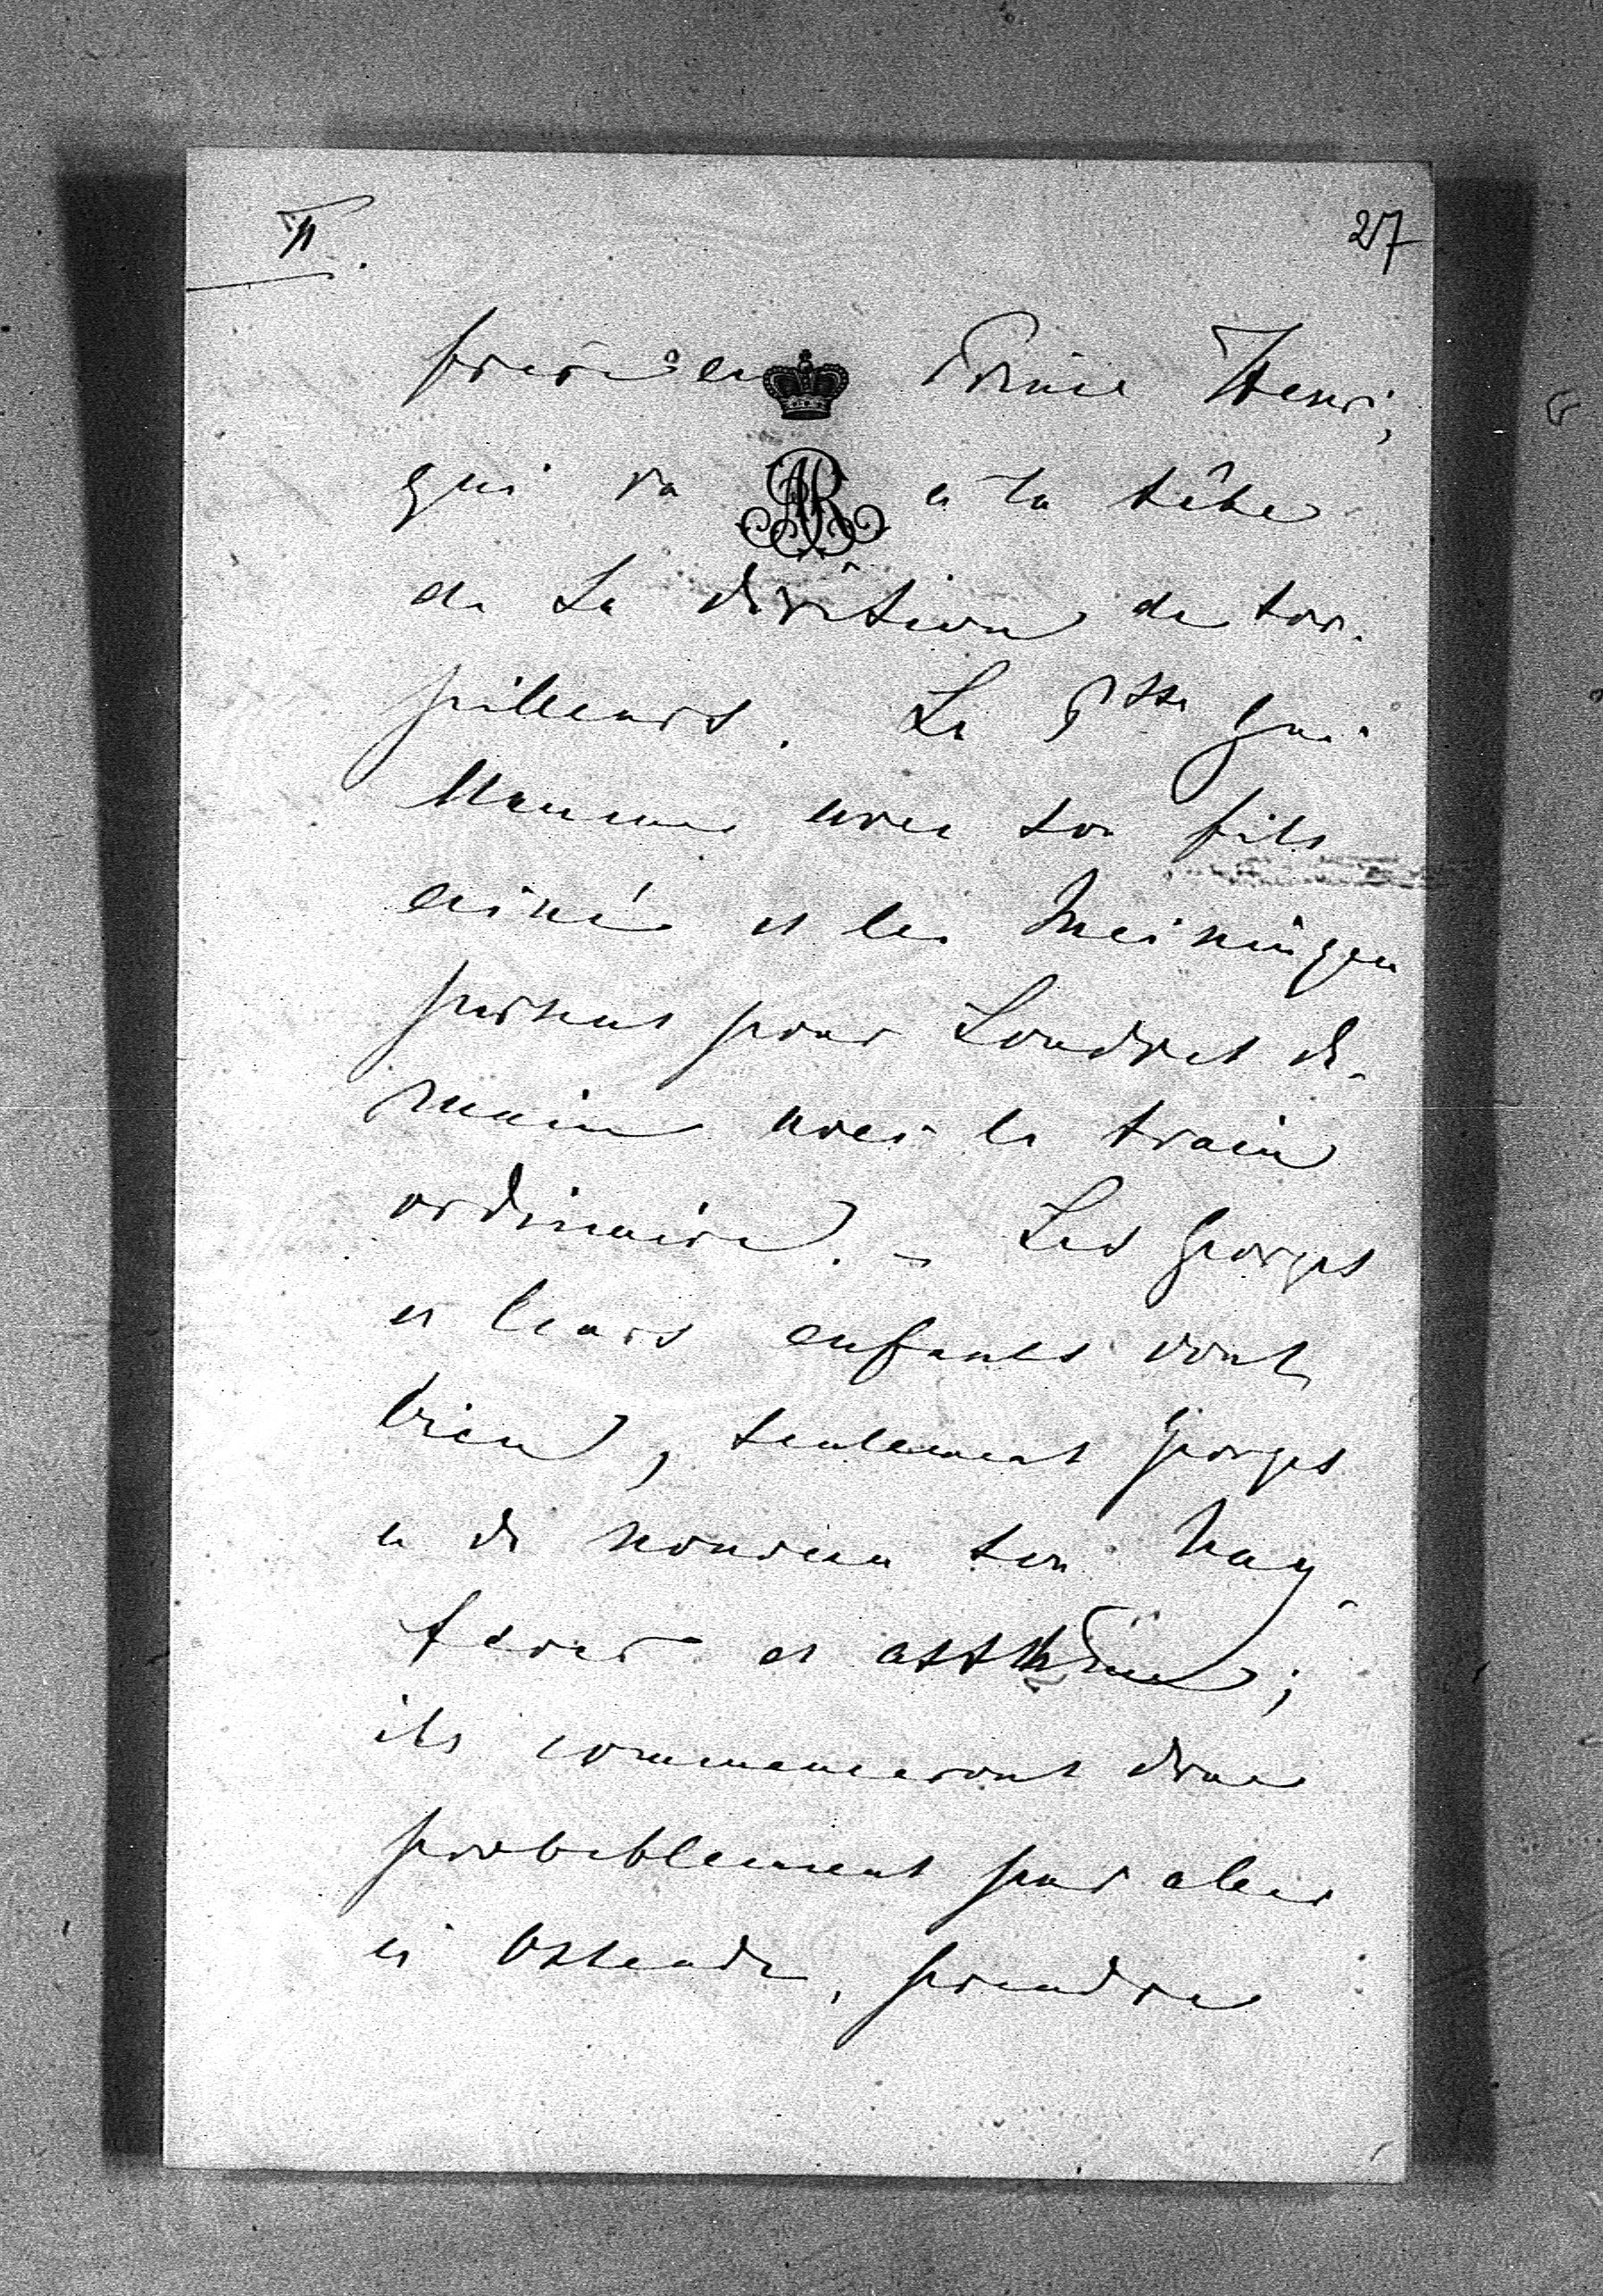 II.
27
frère le Prince Henri,
qui va à la tête
de la division de tor-
pilleurs. La Psse Gui-
llaume avec son fils
aîné et les Meiningen
partent pour Londres de-
main avec le train
ordinaire. – Les Georges
et leurs enfants vont
bien, seulement Georges
a de nouveau son hay-
fever et asthme;
ils commenceront donc
probablement par aller
à Ostende, prendre